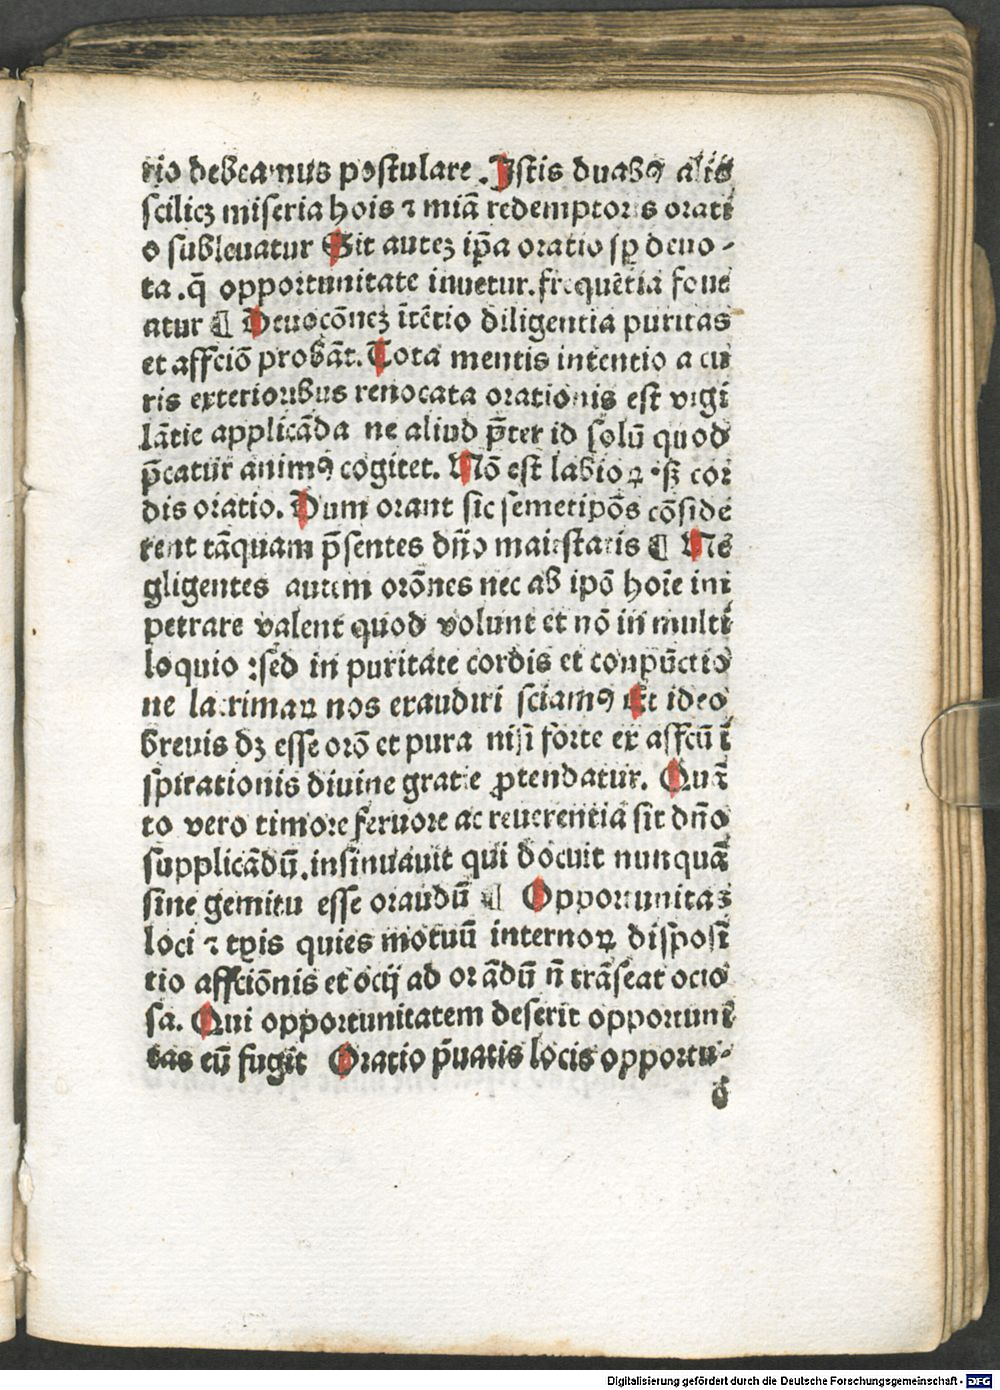 rio debeamus postulare. Istis duabꝰ alis
scilicꝫ miseria hoīs ⁊ miā redemptoris orati
o subleuatur Sit auteꝫ ip̄a oratio sp̄ deuo-
ta. q̄ opportunitate iuuetur. frequētia foue
atur ¶ Deuocōneꝫ ītētio diligentia puritas
et affciō probāt. Tota mentis intentio a cu
ris exterioribus reuocata orationis est vigi
lātie applicāda ne aliud p̄ter id solū quod
p̄catur animꝰ cogitet. Nō est labioꝝ sꝫ cor
dis oratio. Dum orant sic semetipōs cōside
rent tāquam p̄sentes dn̄o maiestatis ¶ Ne
gligentes autem orōnes nec ab ipō hoīe im
petrare valent quod volunt et nō in multi
loquio :sed in puritate cordis et conpūctio
ne lacrimaꝝ nos exaudiri sciamꝰ Et ideo
breuis dꝫ esse orō et pura nisi forte ex affcū ī
spirationis diuine gratie ꝓtendatur. Quā
to vero timore feruore ac reuerentia sit dn̄o
supplicādū. insinuauit qui docuit nunquā
sine gemitu esse oraudū ¶ Opportunitas
loci ⁊ tp̄is quies motuū internoꝝ disposi
tio affciōnis et ocij ad orādū n̄ trāseat ocio
sa. Qui opportunitatem deserit opportuni
tas eū fugit Oratio p̄uatis locis opportu-